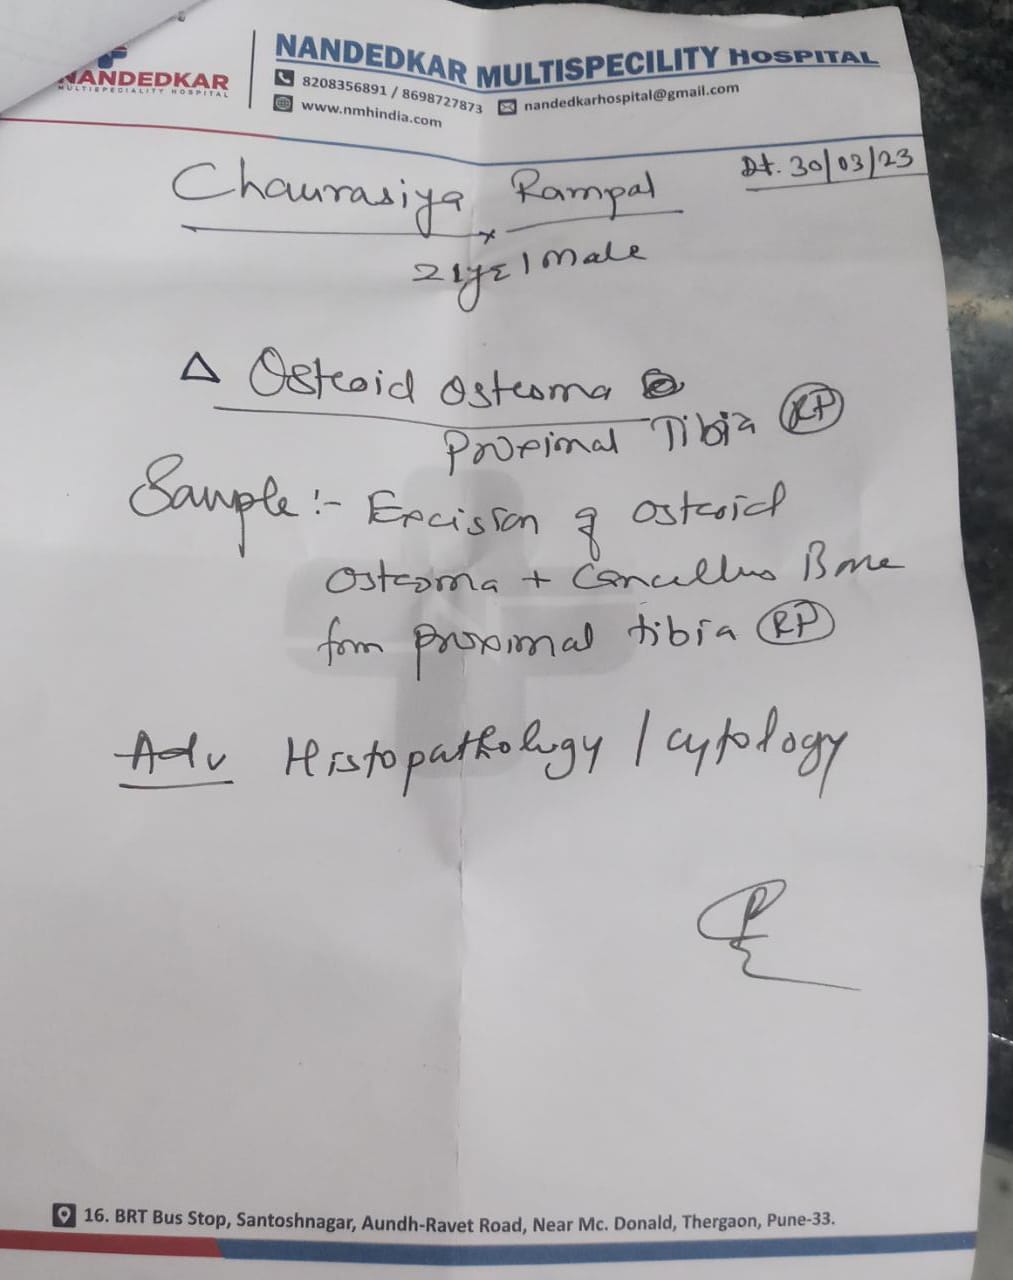 NANDEDKAR
MULTISPECIALITY HOSPITAL
NANDEDKAR MULTISPECILITY HOSPITAL
8208356891 / 8698727873
nandedkarhospital@gmail.com
www.nmhindia.com
Dt. 30/03/23
Chaurasiya Rampal
21yrs / male
Δ Osteoid Osteoma
Proximal Tibia RP
Sample :- Excision of osteoid
Osteoma + Cancellus Bone
from proximal tibia RP
Adv Histopathology / cytology
16. BRT Bus Stop, Santoshnagar, Aundh-Ravet Road, Near Mc. Donald, Thergaon, Pune-33.